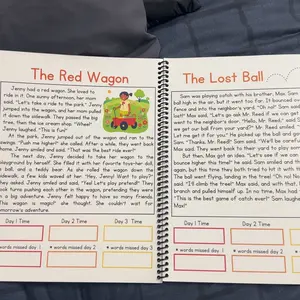 The Red Wagon
Jenny had a red wagon. She loved to
ride in it. One sunny afternoon, her mom
said, "Let's take a ride to the park." Jenny
jumped into the wagon, and her mom pulled
it down the sidewalk. They passed the big
tree, then the ice cream shop. "Whee!"
Jenny laughed. "This is fun!"
At the park, Jenny jumped out of the wagon and ran to the
swings. "Push me higher!" she called. After a while, they went back
home. Jenny smiled and said, "That was the best ride ever!"
The next day, Jenny decided to take her wagon to the
playground by herself. She filled it with her favorite toys—her doll,
a ball, and a teddy bear. As she rolled the wagon down the
sidewalk, a few kids waved at her. "Hey, Jenny! Want to play?"
they asked. Jenny smiled and said, "Yes! Let's play pretend!" They
took turns pushing each other in the wagon, pretending they were
in a big adventure. Jenny felt happy to have so many friends.
This wagon is magic! she thought. She couldn't wait for
tomorrow's adventure.
Day 1 Time
Day 2 Time
Day 3 Time
words missed day 1
• words missed day 2
• words missed day 3
The Lost Ball
Sam was playing catch with his brother, Max. Sam
ball high in the air, but it went too far. It bounced on
fence and into the neighbor's yard. "Oh no!" Sam said
lost!" Max said, "Let's go ask Mr. Reed if we can get
went to the neighbor's door. "Hi, Mr. Reed," said
we get our ball from your yard?" Mr. Reed smiled.
Let me get it for you." He picked up the ball and
Sam. "Thanks, Mr. Reed!" Sam said. "We'll be careful
Max said. They went back to their yard to play some
But then, Max got an idea. "Let's see if we can
bounce higher this time!" he said. Sam smiled and th
again, but this time they both tried to hit it with th
The ball went flying, landing in the tree. "Oh no! No
said. "I'll climb the tree!" Max said, and with that,
branch and pulled himself up. In no time, Max had
"This is the best game of catch ever!" Sam laughe
Max!"
Day 1 Time
Day 2 Time
• words missed day 1
• words missed day 2